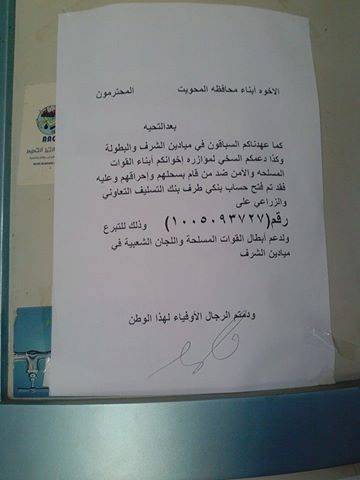 الاخوه أبناء محافظه المحويت المحترمون
بعدالتحيه
كما عهدناكم السباقون في ميادين الشرف والبطولة
وكذا دعمكم السخي لموازره إخوانكم أبناء القوات
المسلحه والامن ضد من قام بسحلهم وإحراقهم وعليه
فقد تم فتح حساب بنكي طرف بنك التسليف التعاوني
والزراعي على
رقم(١٠٠٥٠٩٣٧٢٧) وذلك للتبرع
ولدعم أبطال القوات المسلحة واللجان الشعبية في
ميادين الشرف
ودمتم الرجال الأوفياء لهذا الوطن